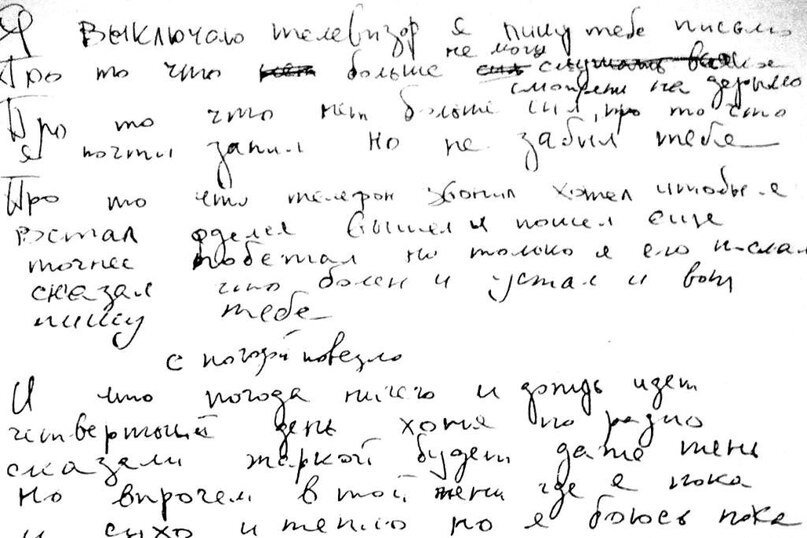 Я выключаю телевизор я пишу тебе письмо
не могу
Про то что больше слушать
смотреть на дерьмо
Про то что нет больше сил, про то что
я почти запил но не забыл тебя
Про то что телефон звонил хотел чтобы я
встал оделся вышел и пошел еще
точнее побежал но только я его послал
сказал что болен и устал и вот
пишу тебе
с погодой повезло
И что погода ничего и дождь идет
четвертый день хотя по радио
сказали жаркой будет даже тень
но впрочем в той тени где я пока
и сухо и тепло но я боюсь пока